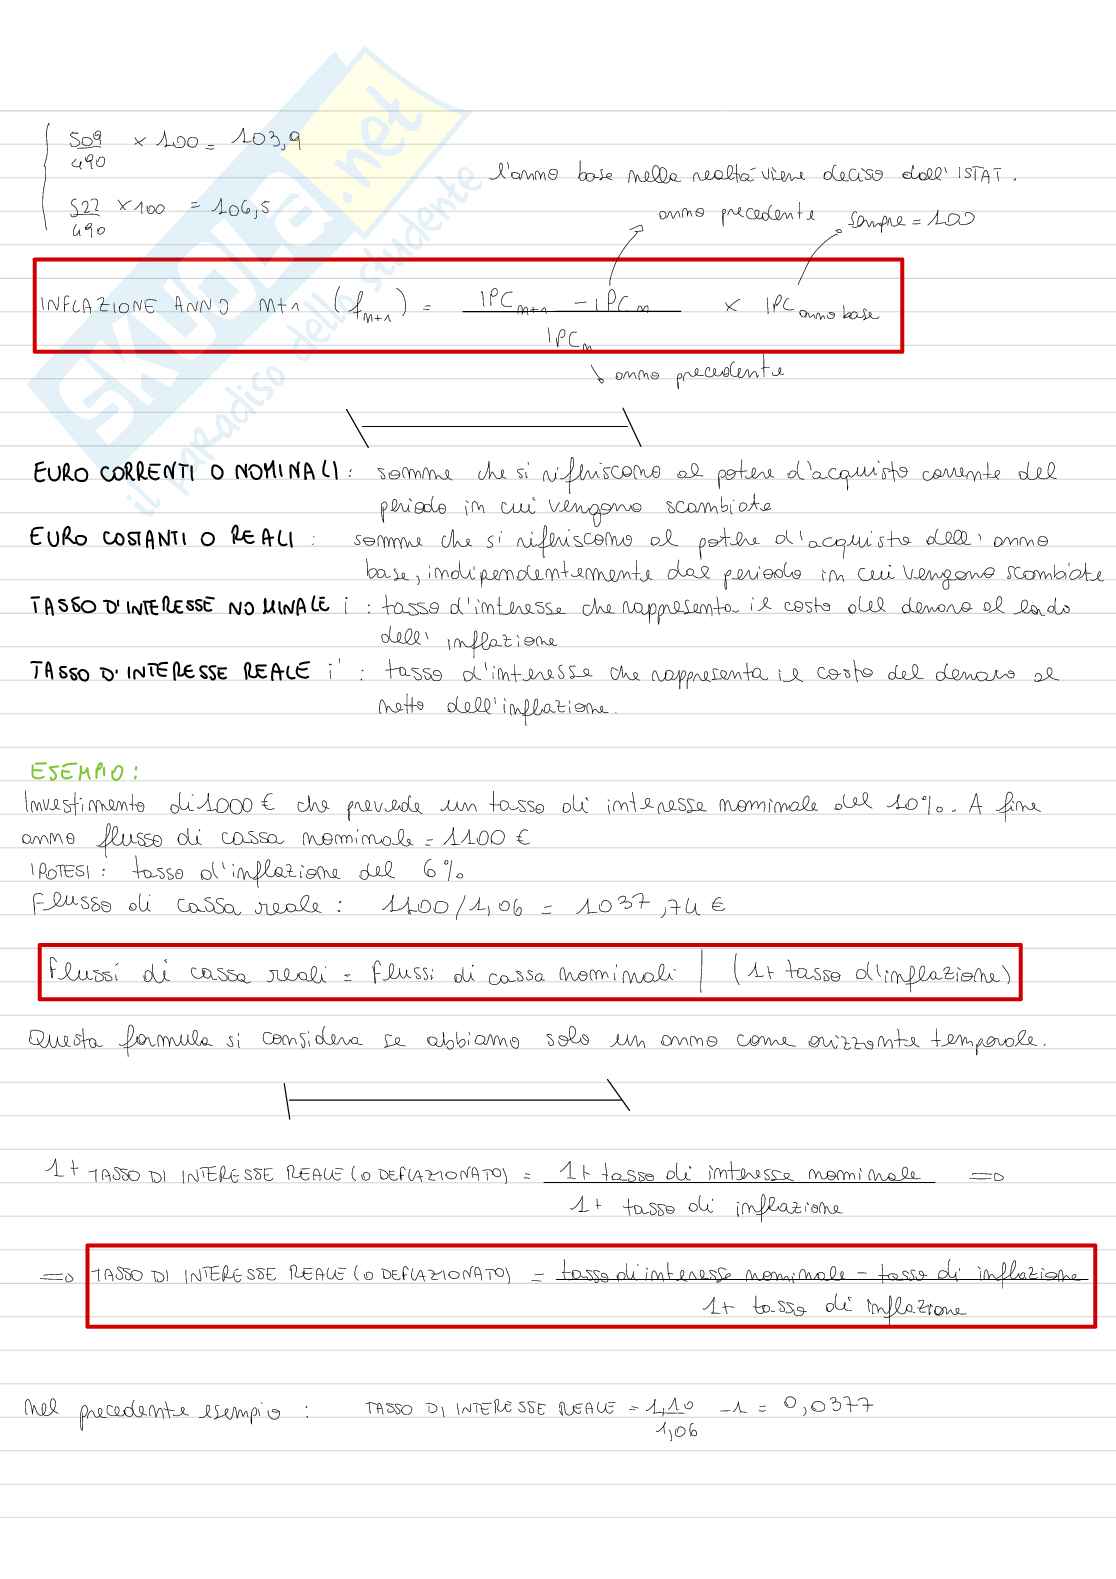 509/490 × 100 = 103,9
527/490 × 100 = 106,5
l'anno base nella realtà viene deciso dall'ISTAT.
anno precedente
sempre = 100
INFLAZIONE ANNO n+1 (f n+1) = (IPC n+1 - IPC n) / IPC n × IPC anno base
anno precedente
EURO CORRENTI O NOMINALI: somme che si riferiscono al potere d'acquisto corrente del
periodo in cui vengono scambiate
EURO COSTANTI O REALI: somme che si riferiscono al potere d'acquisto dell'anno
base, indipendentemente dal periodo in cui vengono scambiate
TASSO D'INTERESSE NOMINALE i: tasso d'interesse che rappresenta il costo del denaro al lordo
dell'inflazione
TASSO D'INTERESSE REALE i': tasso d'interesse che rappresenta il costo del denaro al
netto dell'inflazione.
ESEMPIO:
Investimento di 1000 € che prevede un tasso di interesse nominale del 10%. A fine
anno flusso di cassa nominale = 1100 €
IPOTESI: tasso d'inflazione del 6%
Flusso di cassa reale: 1100/1,06 = 1037,74 €
Flussi di cassa reali = Flussi di cassa nominali | (1+ tasso d'inflazione)
Questa formula si considera se abbiamo solo un anno come orizzonte temporale.
1+ TASSO DI INTERESSE REALE (O DEFLAZIONATO) = 1+ tasso di interesse nominale / 1+ tasso di inflazione =>
=> TASSO DI INTERESSE REALE (O DEFLAZIONATO) = tasso di interesse nominale - tasso di inflazione / 1+ tasso di inflazione
Nel precedente esempio: TASSO DI INTERESSE REALE = 1,10/1,06 - 1 = 0,0377
SKUOLA.net
il paradiso dello studente